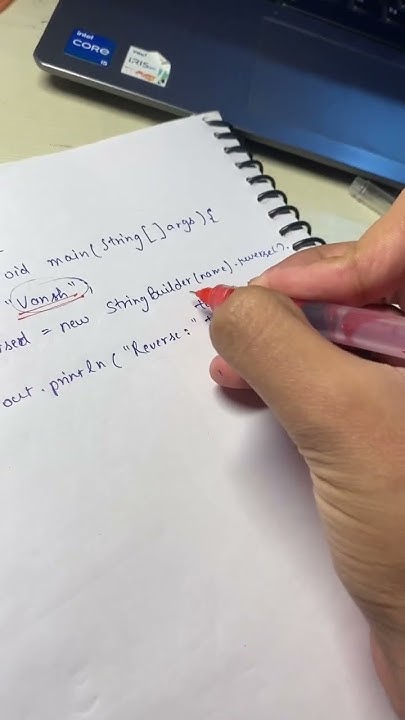 intel
CORE
i5
intel
oid main(String[]args){
"Vansh";
= new StringBuilder(name).reverse().
out.println("Reverse:" +